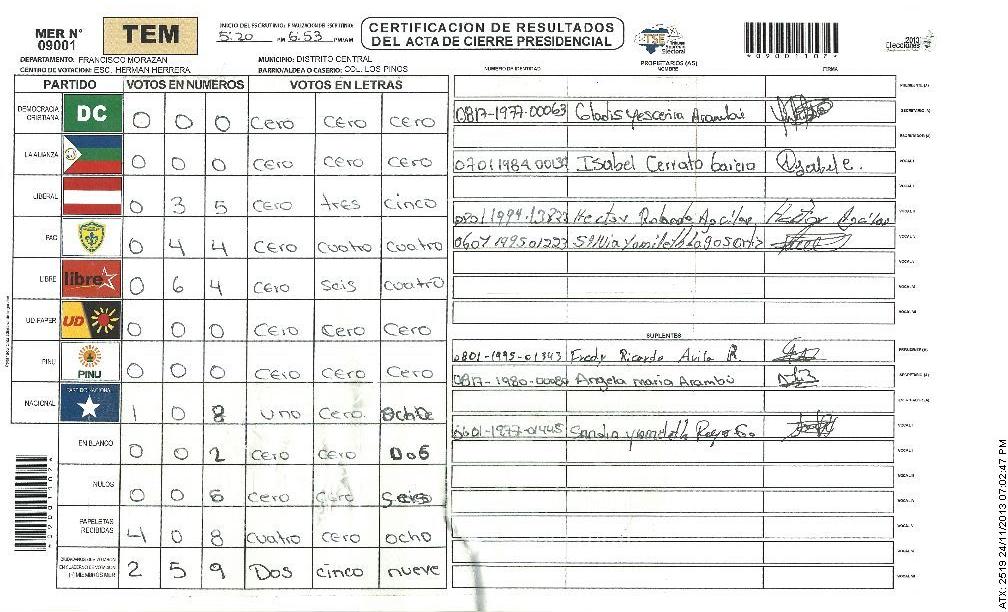 MER N° 09001
TEM
INICIO DEL ESCRUTINIO: FINALIZACION DEL ESCRUTINIO:
5:20 PM 6:53 PM/AM
CERTIFICACION DE RESULTADOS
DEL ACTA DE CIERRE PRESIDENCIAL
TSE
Tribunal Supremo Electoral
2013 Elecciones
* 0 9 0 0 1 1 0 7 *
DEPARTAMENTO: FRANCISCO MORAZAN
MUNICIPIO: DISTRITO CENTRAL
CENTRO DE VOTACION: ESC. HERMAN HERRERA
BARRIO/ALDEA O CASERIO: COL. LOS PINOS
NUMERO DE IDENTIDAD
PROPIETARIOS (AS)
NOMBRE
FIRMA
PARTIDO VOTOS EN NUMEROS VOTOS EN LETRAS
DEMOCRACIA CRISTIANA DC 0 0 0 cero cero cero
LA ALIANZA 0 0 0 cero cero cero
LIBERAL 0 3 5 cero tres cinco
PAC 0 4 4 cero cuatro cuatro
LIBRE libre 0 6 4 cero seis cuatro
UD FAPER UD 0 0 0 cero cero cero
PINU PINU 0 0 0 cero cero cero
NACIONAL PARTIDO NACIONAL 1 0 8 uno cero ocho
EN BLANCO 0 0 2 cero cero Dos
NULOS 0 0 6 cero cero seis
PAPELETAS RECIBIDAS 4 0 8 cuatro cero ocho
2 5 9 Dos cinco nueve
PRESIDENTE (A)
0817-1977-00063 Gladis Yessenia Arambú SECRETARIO (A)
ESCRUTADOR (A)
Isabel Cerrato Garcia VOCAL I
Hector Rolando Aguilar Hector Aguilar
0607 199501223
SUPLENTES
0801-1995-01343 Fredy Ricardo Avila R PRESIDENTE (A)
0817-1980-00080 Angela maria Arambú SECRETARIO (A)
ESCRUTADOR (A)
0601-1977-01445 Sandra VOCAL I
ATX: 2519 24/11/2013 07:02:47 PM